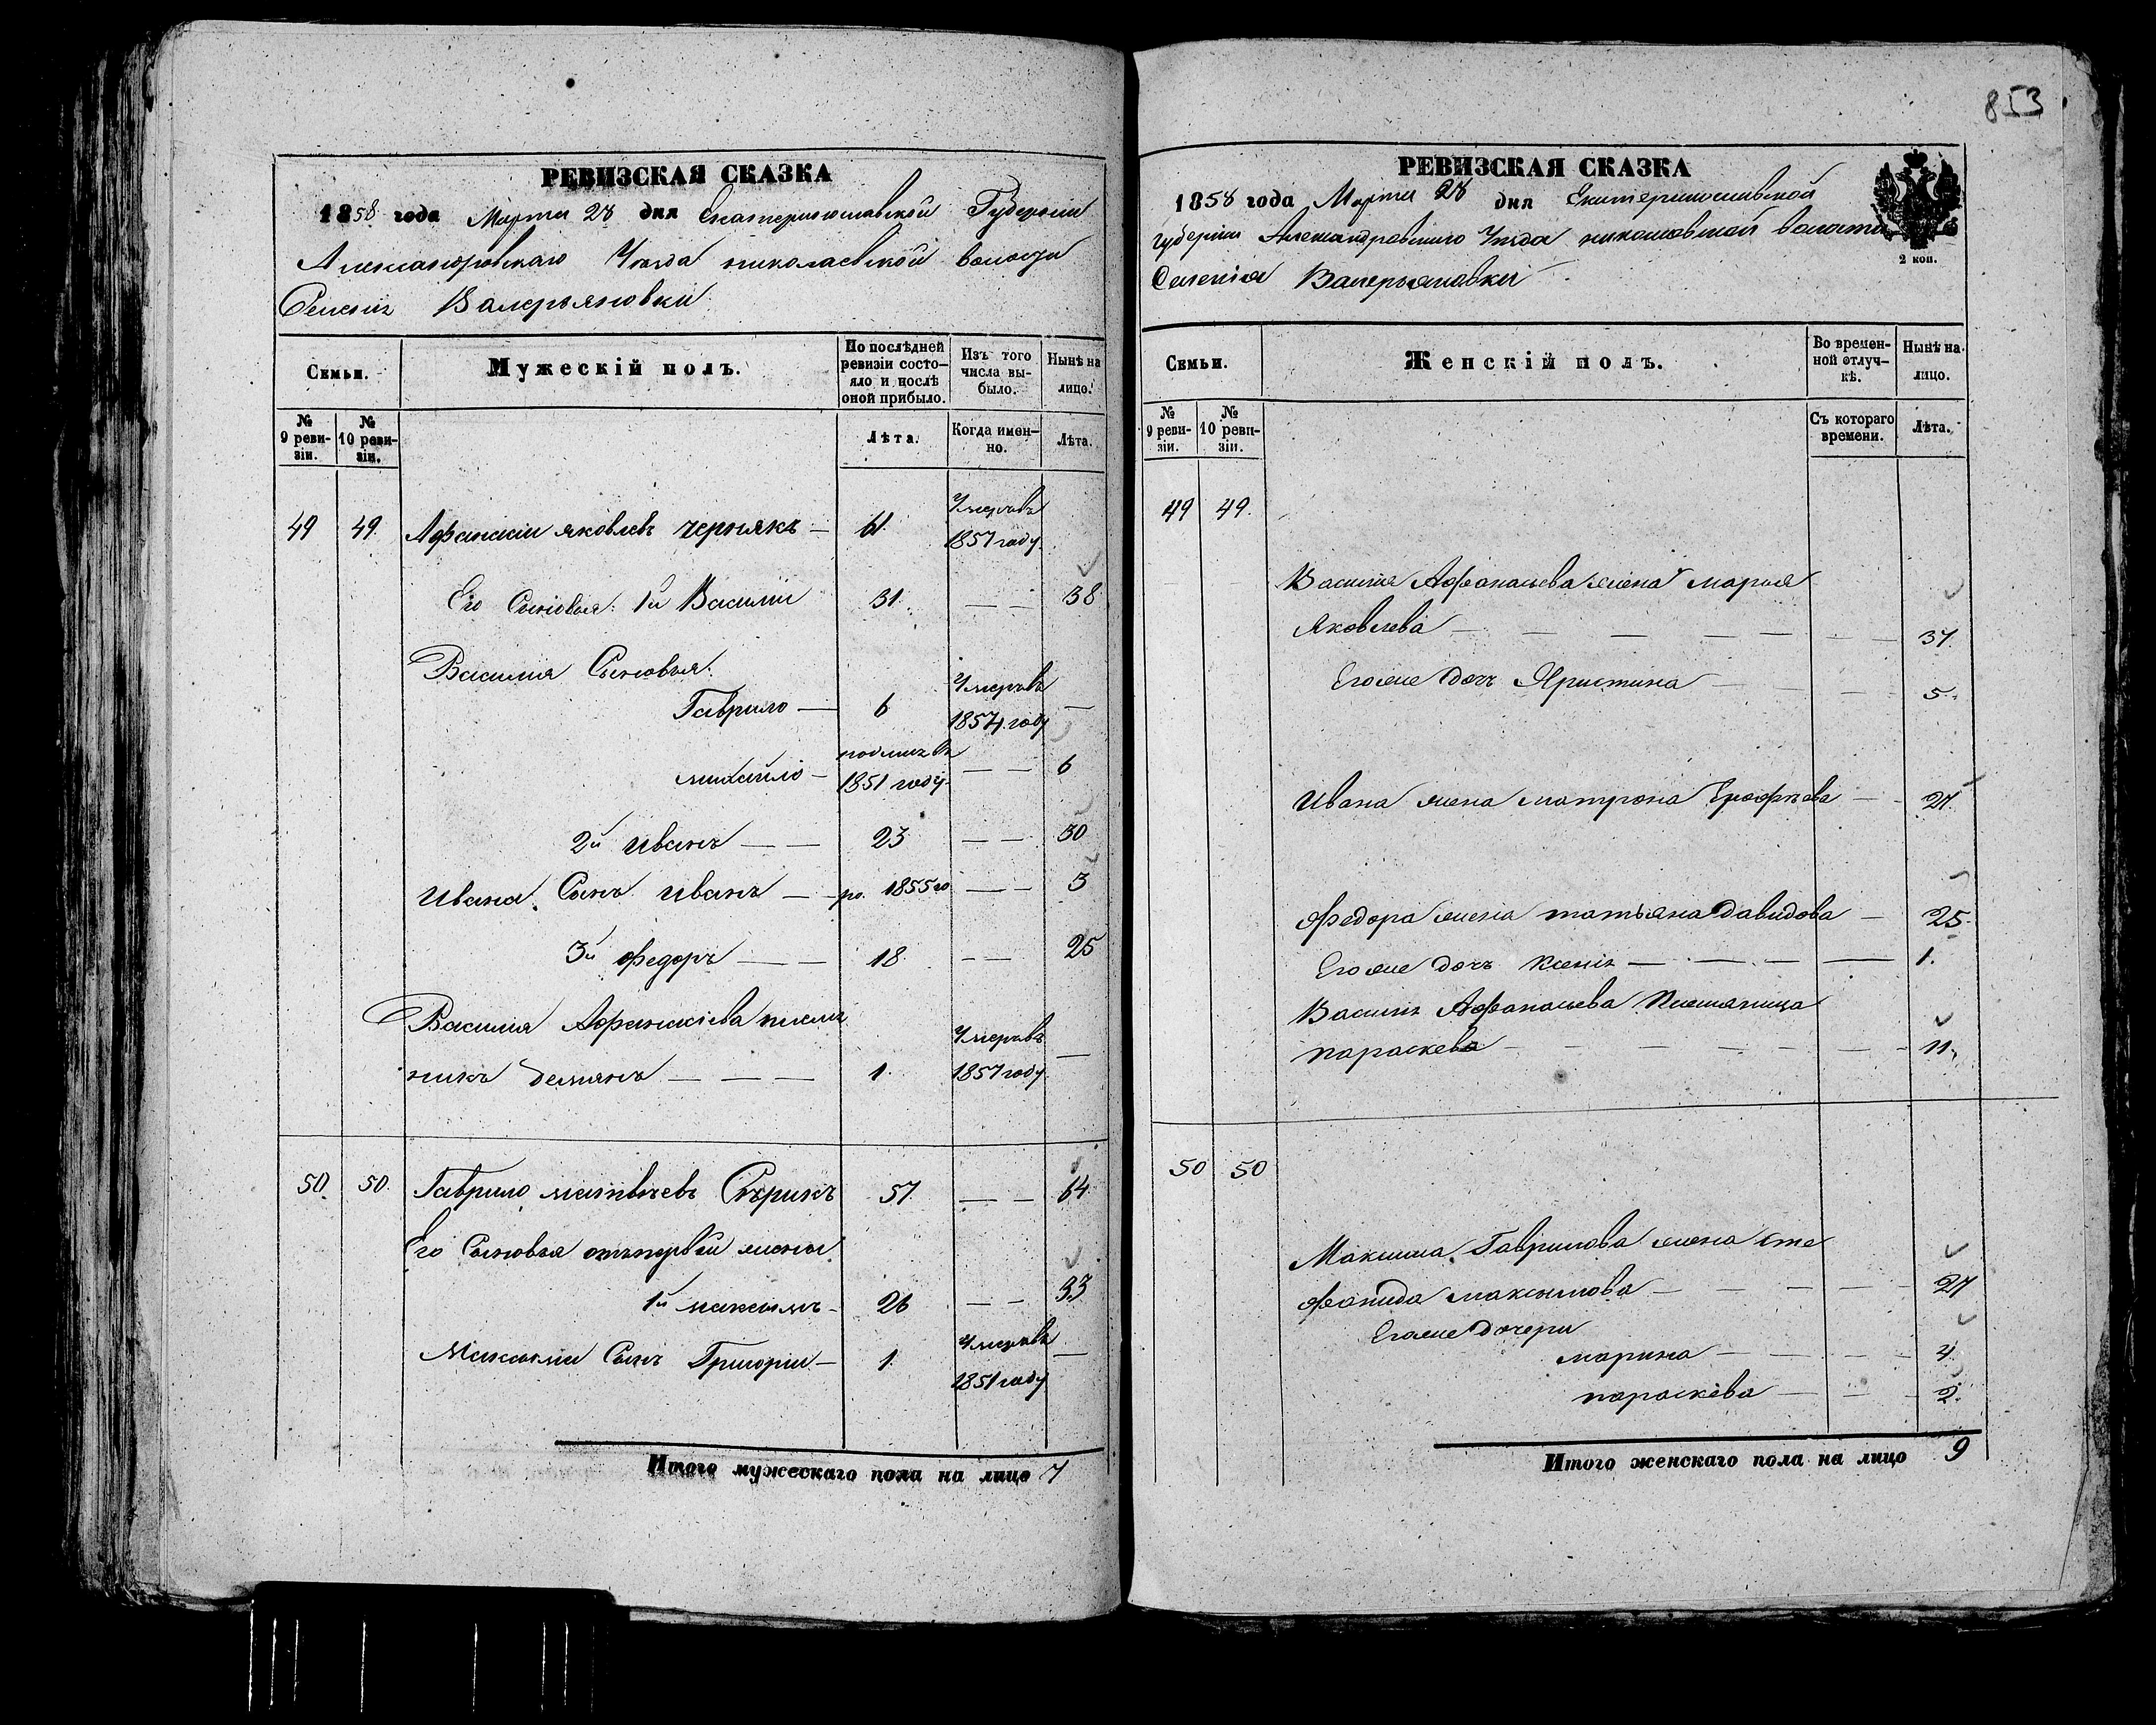 853
РЕВИЗСКАЯ СКАЗКА
1858 года Марта 28 дня Екатеринославской Губерніи
Александровскаго Уезда николаевской волости
Селенія Валерьяновки
Семьи.
Мужескій полъ.
По послѣдней ревизіи состо-яло и послѣ оной прибыло.
Изъ того числа вы-было.
Нынѣ на лицо.
№ 9 реви-зіи.
№ 10 реви-зіи.
Лѣта.
Когда имен-но.
Лѣта.
49 49. Афанасіи яковлевъ чернякъ — 61. Умеръ въ 1857 году.
Его Сыновья: 1й Василіи 31. — — 38
Василия Сыновья:
Гаврило — 6 Умеръ въ 1854 году —
михайло — 1851 году — — 6
2й иванъ — — 23 — — 30
Ивана Сынъ иванъ — ро. 1855 го — — 3
3й Федоръ — — 18. — — 25
Василия Афанасіева племя
никъ демянъ — — — 1. Умеръ въ 1857 году —
50. 50. Гаврило матвѣевъ Сѣрикъ 57. — — 64
Его Сыновья отъ первой жены
1й максимъ — 26 — — 33
Максима Сынъ Григоріи — 1. Умеръ въ 1851 году —
Итого мужескаго пола на лицо 7
РЕВИЗСКАЯ СКАЗКА
1858 года Марта 28 дня Екатеринославской
губерніи Александровскаго Уезда николаевской волости
Селенія Валерьяновки
2 коп.
Семьи.
Женскій полъ.
Во времен-ной отлуч-кѣ.
Нынѣ на лицо.
№ 9 реви-зіи.
№ 10 реви-зіи.
Съ котораго времени.
Лѣта.
49 49.
Василия Афанасьева жена марья
Яковлева — — — — — — — 37.
Его же дочь Христина — — — 5.
Ивана жена матрона Ерофѣева — — 27.
Федора жена татьяна давидова — 25.
Его же дочь Ксенія — — — — 1.
Василія Афанасьева племяница
параскева — — — — — — — 11.
50 50
Максима Гаврилова жена сте
фанида максимова — — — — — 27
Его же дочери
марина — — — — 4.
параскева — — — 2.
Итого женскаго пола на лицо 9